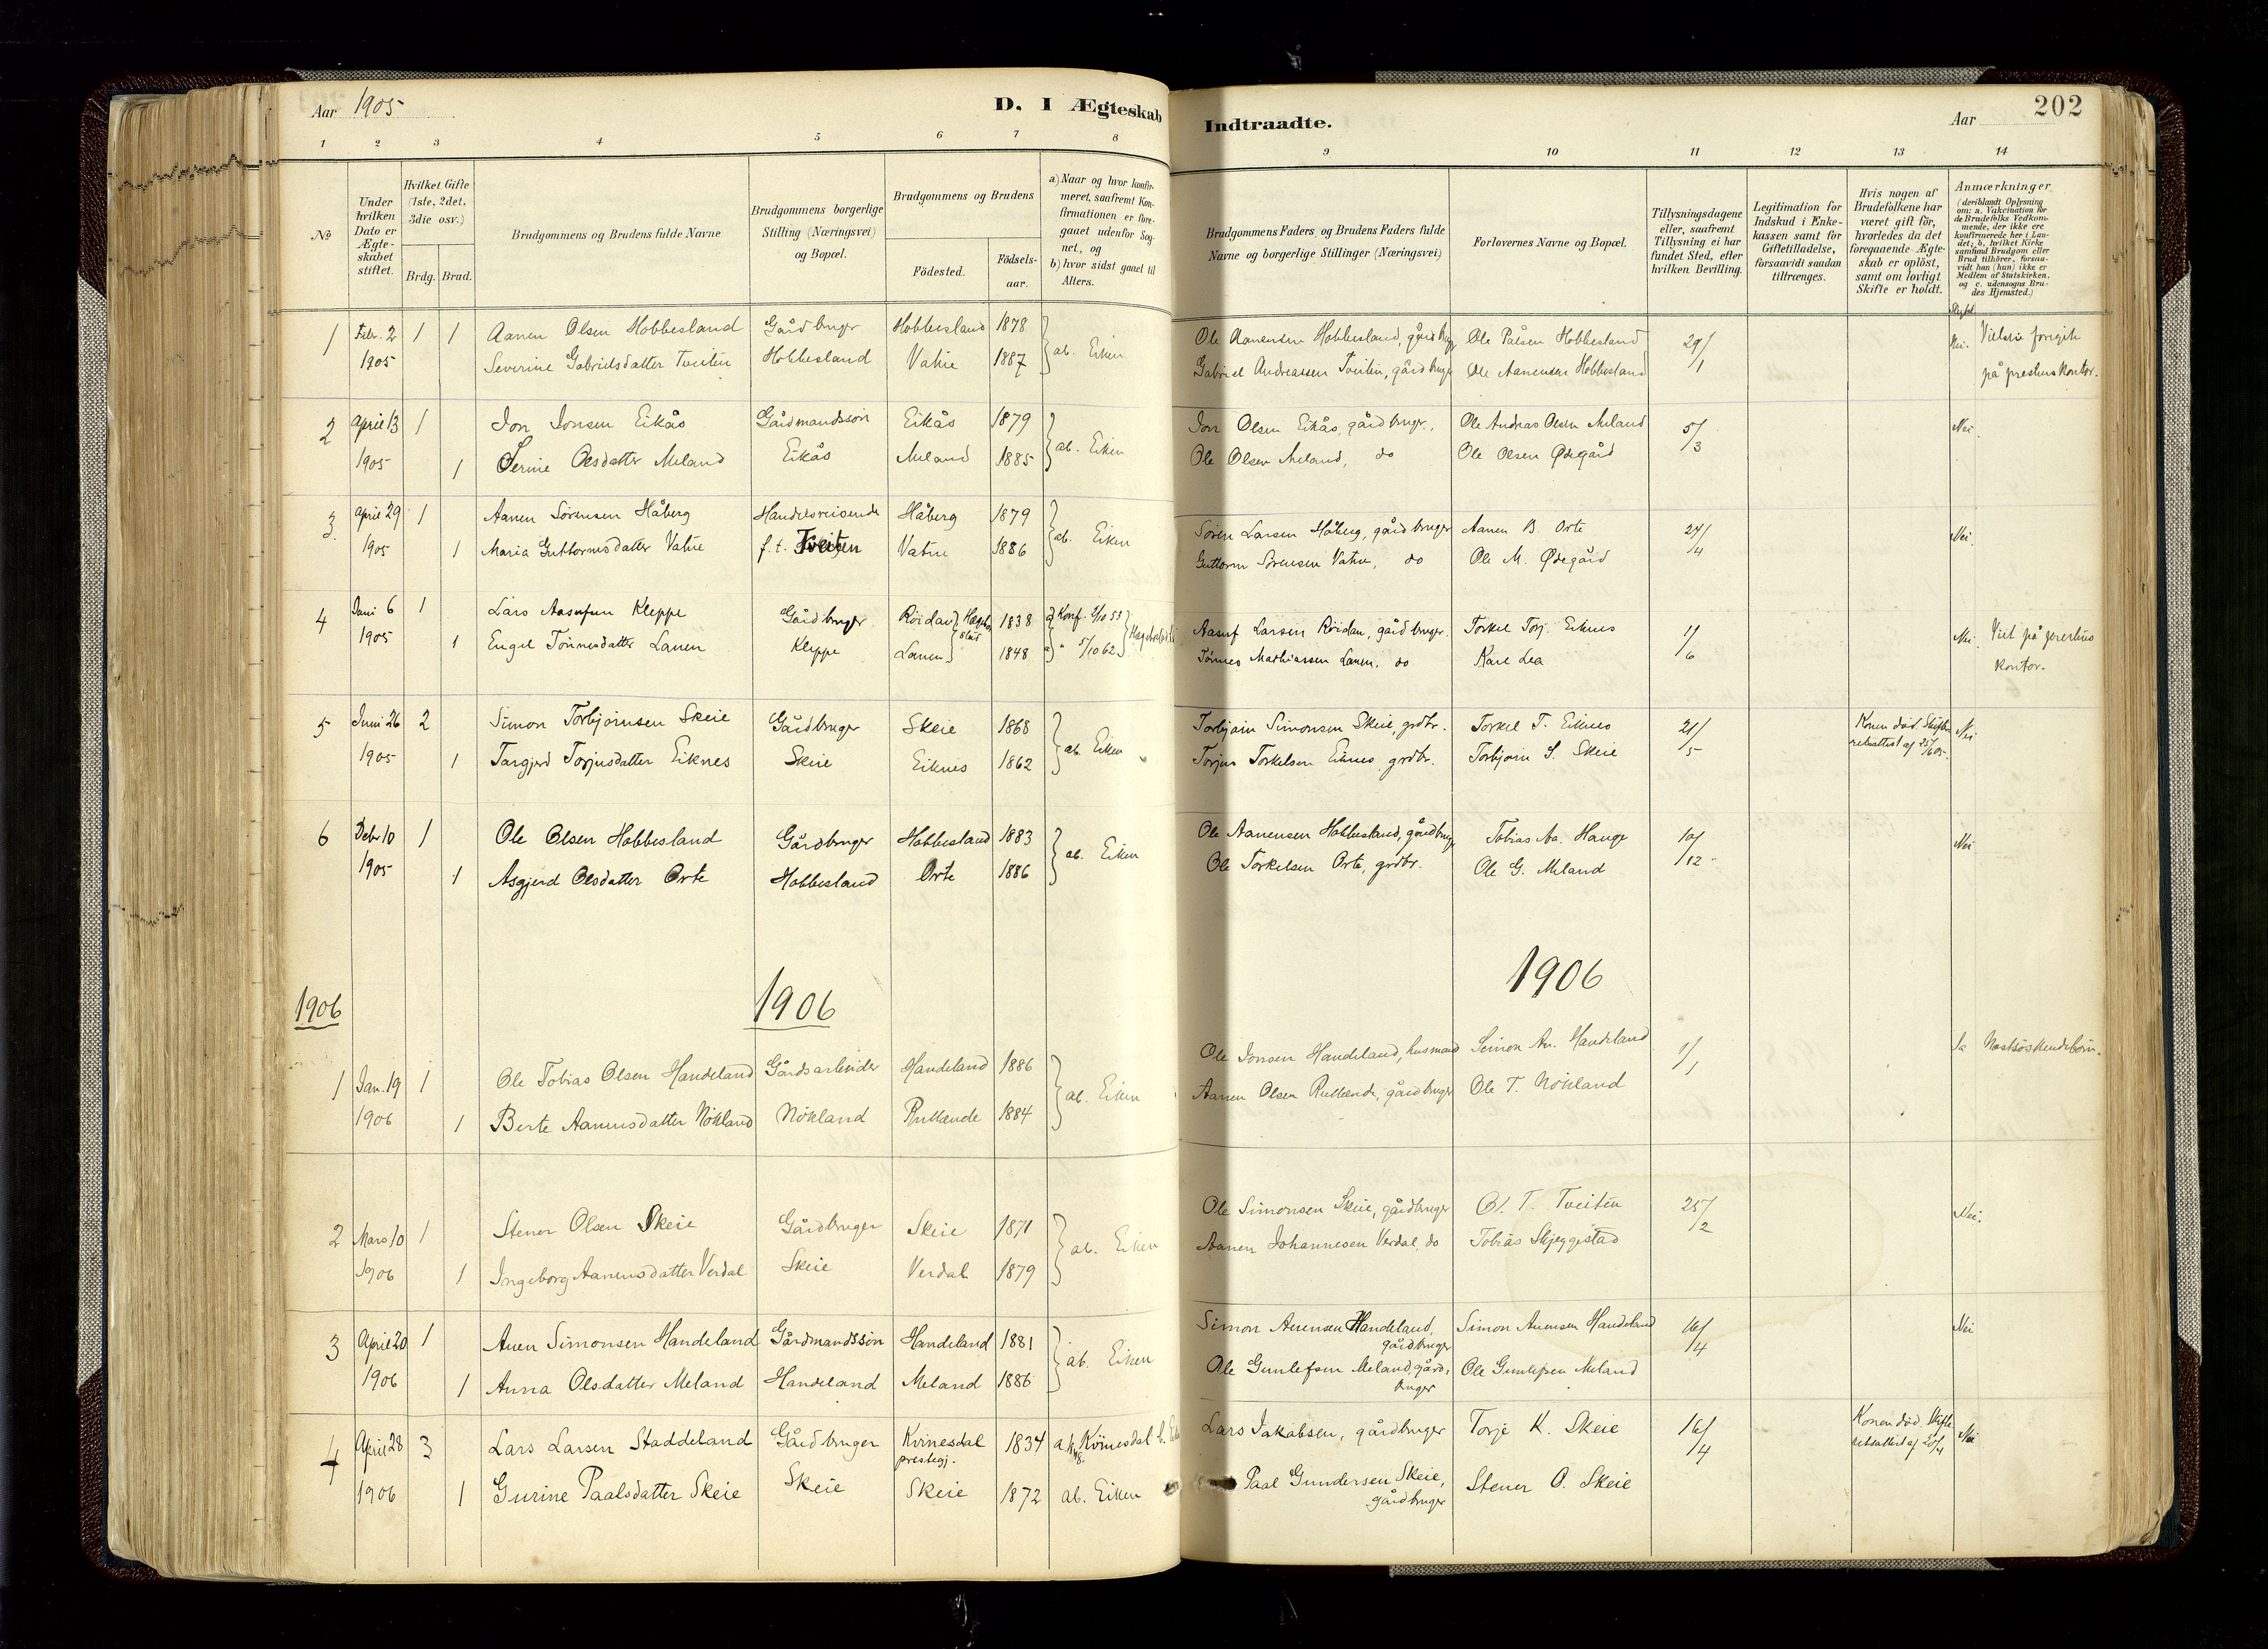 Aar 1905
D. I Ægteskab
Indtraadte.
Aar
202
1 2 3 4 5 6 7 8 9 10 11 12 13 14
No
Under hvilken Dato er Ægteskabet stiftet.
Hvilket Gifte (1ste, 2det, 3die osv.)
Brdg. Brud.
Brudgommens og Brudens fulde Navne
Brudgommens borgerlige Stilling (Næringsvei) og Bopæl.
Brudgommens og Brudens
Födested.
Födselsaar.
a) Naar og hvor konfirmeret, saafremt Konfirmationen er foregaaet udenfor Sognet, og
b) hvor sidst gaaet til Alters.
Brudgommens Faders og Brudens Faders fulde Navne og borgerlige Stillinger (Næringsvei)
Forlovernes Navne og Bopæl.
Tillysningsdagene eller, saafremt Tillysning ei har fundet Sted, efter hvilken Bevilling.
Legitimation for Indskud i Enkekassen samt for Giftetilladelse, forsaavidt saadan tiltrænges.
Hvis nogen af Brudefolkene har været gift för, hvorledes da det foregaaende Ægteskab er oplöst, samt om lovligt Skifte er holdt.
Anmærkninger (deriblandt Oplysning om: a. Vakcination for de Brudefolks Vedkommende, der ikke ere konfirmerede her i Landet; b. hvilket Kirkesamfund Brudgom eller Brud tilhörer, forsaavidt han (hun) ikke er Medlem af Statskirken, og c. udensogns Brudes Hjemsted.)
1 Febr. 2 1 1 Aanen Olsen Hobbesland Gårdbruger Hobbesland 1878 ab. Eiken Ole Aanensen Hobbesland, gårdbrug Ole Pålsen Hobbesland 29/1 Nei. Vielsen foregik
1905 Severine Gabrielsdatter Tveiten Hobbesland Vatne 1887 Gabriel Andreassen Tveiten, gårdbruger Ole Aanensen Hobbesland på prestens kontor.
2 April 13 1 Jon Jonsen Eikås Gårdmandssön Eikås 1879 ab. Eiken Jon Olsen Eikås, gårdbruger. Ole Andreas Olsen Meland 5/3 Nei.
1905 1 Serine Olsdatter Meland Eikås Meland 1885 Ole Olsen Meland, do Ole Olsen Ødegård
3. April 29 1 Aanen Sörensen Håberg Handelsreisende Håberg 1879 ab. Eiken Sören Larsen Håberg, gårdbruger Aanen B. Orte 24/4 Nei.
1905 1 Maria Guttormsdatter Vatne f. t. Tveiten Vatne 1886 Guttorm Sörensen Vatne, do Ole M. Ødegård
4 Juni 6 1 Lars Aasufsen Kleppe Gårdbruger Röidan 1838 a) Konf. 2/10 53 Aasuf Larsen Röidan, gårdbruger. Torkel Torj. Eiknes 1/6 Nei Viet på prestens
1905 1 Engel Tönnesdatter Lanen Kleppe Lanen 1848 a) " 5/10 62 Tönnes Mathiassen Lanen, do Karl Lea kontor.
5 Juni 26 2 Simon Torbjörnsen Skeie Gårdbruger Skeie 1868 ab. Eiken Torbjörn Simonsen Skeie, grdbr. Torkel T. Eiknes 21/5 Konen död. Nei
1905 1 Targjerd Torjusdatter Eiknes Skeie Eiknes 1862 Torjus Torkelsen Eiknes, grdbr. Torbjörn S. Skeie
6 Debr 10 1 Ole Olsen Hobbesland Gårdbruger Hobbesland 1883 ab. Eiken Ole Aanensen Hobbesland, gårdbrug Tobias Aa. Hauge 10/12 Nei
1905 1 Asgjerd Olsdatter Orte Hobbesland Orte 1886 Ole Torkelsen Orte, grdbr. Ole G. Meland
1906 1906 1906
1 Jan. 19 1 Ole Tobias Olsen Handeland Gårdsarbeider Handeland 1886 ab. Eiken Ole Jonsen Handeland, husmand Seimon An. Handeland 1/1 Ja Næstsöskendebörn.
1906 1 Berte Aanensdatter Nökland Nökland Rullende 1884 Aanen Olsen Rullende, gårdbruger Ole T. Nökland
2 Mars 10 1 Stener Olsen Skeie Gårdbruger Skeie 1871 ab. Eiken Ole Simonsen Skeie, gårdbruger Ol. T. Tveiten 25/2 Nei.
1906 1 Ingeborg Aanensdatter Verdal Skeie Verdal 1879 Aanen Johannesen Verdal, do Tobias Skjeggestad
3 April 20 1 Auen Simonsen Handeland Gårdmandssön Handeland 1881 ab. Eiken Simon Auensen Handeland, gårdbruger Simon Auensen Handeland 16/4 Nei
1906 1 Anna Olsdatter Meland Handeland Meland 1886 Ole Gunlefsen Meland, gårdbruger Ole Gunlefsen Meland
4 April 28 3 Lars Larsen Staddeland Gårdbruger Kvinesdal prestegj. 1834 Kvinesdal Lars Jakobsen, gårdbruger Torje K. Skeie 16/4 Konen död. Nei
1906 1 Gurine Paalsdatter Skeie Skeie Skeie 1872 ab. Eiken Paal Gundersen Skeie, gårdbruger Stener O. Skeie